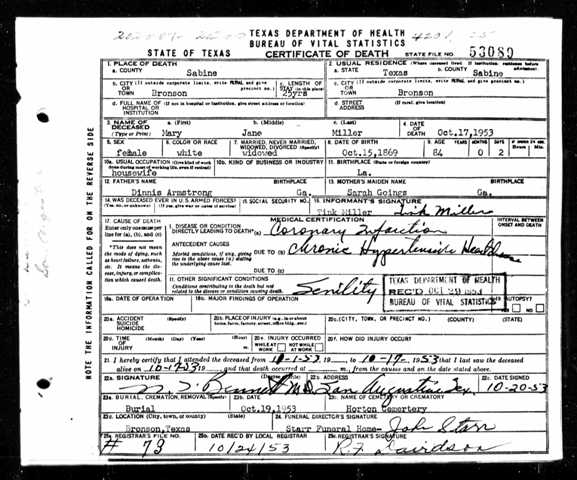 TEXAS DEPARTMENT OF HEALTH
BUREAU OF VITAL STATISTICS
STATE OF TEXAS CERTIFICATE OF DEATH STATE FILE NO. 53089
1. PLACE OF DEATH 2. USUAL RESIDENCE (Where deceased lived. If institution, residence before admission)
a. COUNTY Sabine a. STATE Texas b. COUNTY Sabine
b. CITY (If outside corporate limits, write RURAL and give precinct no.) OR TOWN Bronson c. LENGTH OF STAY (in this place) 25yrs c. CITY (If outside corporate limits, write RURAL and give precinct no.) OR TOWN Bronson
d. FULL NAME OF (If not in hospital or institution, give street address or location) HOSPITAL OR INSTITUTION d. STREET ADDRESS (If rural, give location)
3. NAME OF DECEASED a. (First) Mary b. (Middle) Jane c. (Last) Miller 4. DATE OF DEATH Oct.17,1953
5. SEX female 6. COLOR OR RACE white 7. MARRIED, NEVER MARRIED, WIDOWED, DIVORCED (Specify) widowed 8. DATE OF BIRTH Oct.15,1869 9. AGE YEARS 84 MONTHS 0 DAYS 2
10a. USUAL OCCUPATION (Give kind of work done during most of working life, even if retired) housewife 10b. KIND OF BUSINESS OR INDUSTRY 11. BIRTHPLACE (State or foreign country) La.
12. FATHER'S NAME Dinnis Armstrong BIRTHPLACE Ga. 13. MOTHER'S MAIDEN NAME Sarah Goings BIRTHPLACE Ga.
14. WAS DECEASED EVER IN U.S. ARMED FORCES? (Yes, no, or unknown) (If yes, give war or dates of service) 15. SOCIAL SECURITY NO. 16. INFORMANT'S SIGNATURE Tink Miller Tink Miller
17. CAUSE OF DEATH MEDICAL CERTIFICATION INTERVAL BETWEEN ONSET AND DEATH
Enter only one cause per line for (a), (b), and (c) I. DISEASE OR CONDITION DIRECTLY LEADING TO DEATH (a) Coronary Infarction
*This does not mean the mode of dying, such as heart failure, asthenia, etc. It means the disease, injury, or complication which caused death.
ANTECEDENT CAUSES
Morbid conditions, if any, giving rise to the above cause (a) stating the underlying cause last. DUE TO (b) Chronic Hypertensive
DUE TO (c)
II. OTHER SIGNIFICANT CONDITIONS
Conditions contributing to the death but not related to the disease or condition causing death. Senility
TEXAS DEPARTMENT OF HEALTH
REC'D OCT
BUREAU OF VITAL STATISTICS
18a. DATE OF OPERATION 18b. MAJOR FINDINGS OF OPERATION AUTOPSY? YES NO
20a. ACCIDENT SUICIDE HOMICIDE (Specify) 20b. PLACE OF INJURY (e.g. in or about home, farm, factory, street, office bldg., etc.) 20c. (CITY, TOWN, OR PRECINCT NO.) (COUNTY) (STATE)
20d. TIME OF INJURY (Month) (Day) (Year) (Hour) 20e. INJURY OCCURRED WHILE AT WORK NOT WHILE AT WORK 20f. HOW DID INJURY OCCUR?
21. I hereby certify that I attended the deceased from 10-1-53 19 to 10-17- 1953 that I last saw the deceased
alive on 10-17-53 19 and that death occurred at m., from the causes and on the date stated above.
22a. SIGNATURE Bennett M.D. 22b. ADDRESS San Augustine Tex. 22c. DATE SIGNED 10-20-53
23a. BURIAL, CREMATION, REMOVAL (Specify) Burial 23b. DATE Oct.19,1953 23c. NAME OF CEMETERY OR CREMATORY Horton Cemertery
23d. LOCATION (City, town, or county) (State) Bronson,Texas 24. FUNERAL DIRECTOR'S SIGNATURE Starr Funeral Home- John Starr
25a. REGISTRAR'S FILE NO. # 73 25b. DATE REC'D BY LOCAL REGISTRAR 10/24/53 25c. REGISTRAR'S SIGNATURE R.F. Davidson
NOTE THE INFORMATION CALLED FOR ON THE REVERSE SIDE